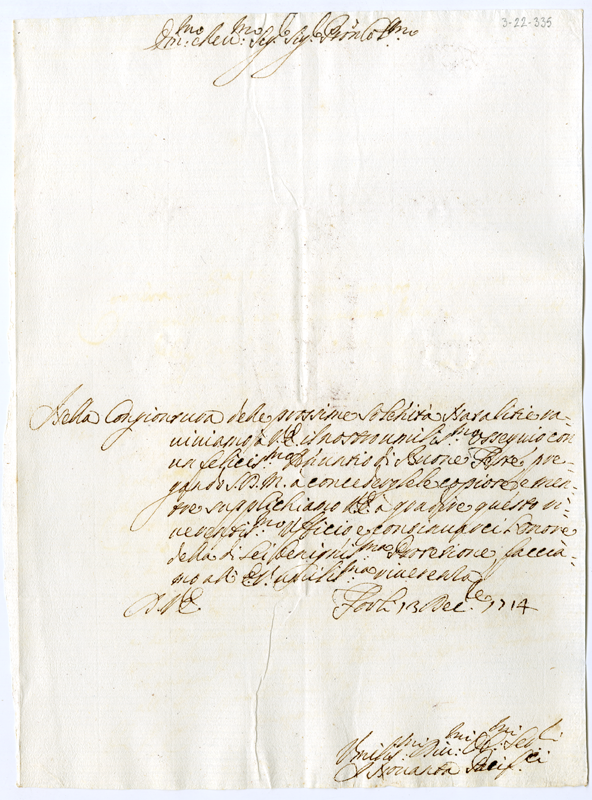 3-22-335
Em.mo e Rev.mo Sig.r Sig.r Pron Col.mo
Nella Congiontura delle prossime Solenità Natalitie ra-
viviamo à V.E. il nostro umilis.mo Ossequio con
un felicis.mo Annuntio di buone Feste, pre-
gando S.D.M. à concedergliele copiose, e men-
tre supplichiamo V.E. à gradire questo ri-
verentis.mo Ufficio e continuarci l'onore
della di lei benignis.ma Protezione facciа-
mo all' E.V. umilis.ma riverenza
D.V.E. Forlì 13 Dec.re 1714
Umiliss.mi Div.mi Obl.mi Ser.i
Novanta Pacif.ci